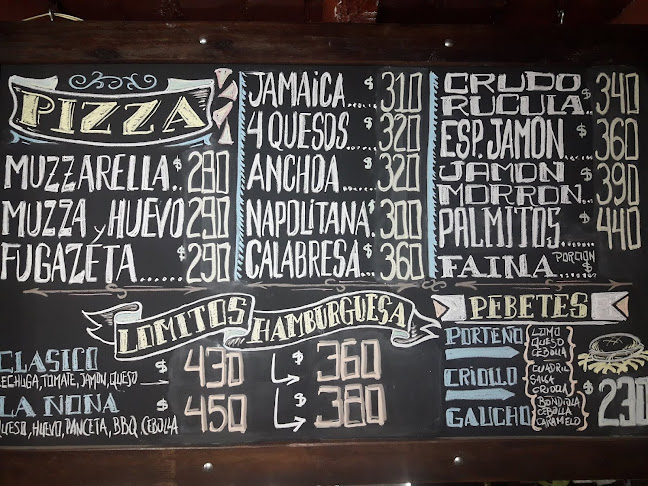 PIZZA
MUZZARELLA.. $280
MUZZA y HUEVO 290
FUGAZETA...... $290
JAMAICA........ $310
4 QUESOS..... $320
ANCHOA...... $320
NAPOLITANA $300
CALABRESA.... $360
CRUDO
RUCULA.. $340
ESP. JAMÓN..... $360
JAMON
MORRON.... $390
PALMITOS..... $440
FAINA PORCION $
LOMITOS HAMBURGUESA
CLASICO
LECHUGA, TOMATE, JAMON, QUESO $430 $360
LA NONA
QUESO, HUEVO, PANCETA, BBQ, CEBOLLA $450 $380
PEBETES
PORTEÑO LOMO
QUESO
CEBOLLA
CRIOLLO CUADRIL
SALSA
CRIOLLA
GAUCHO BONDIOLA
CEBOLLA
CARAMELO
$230